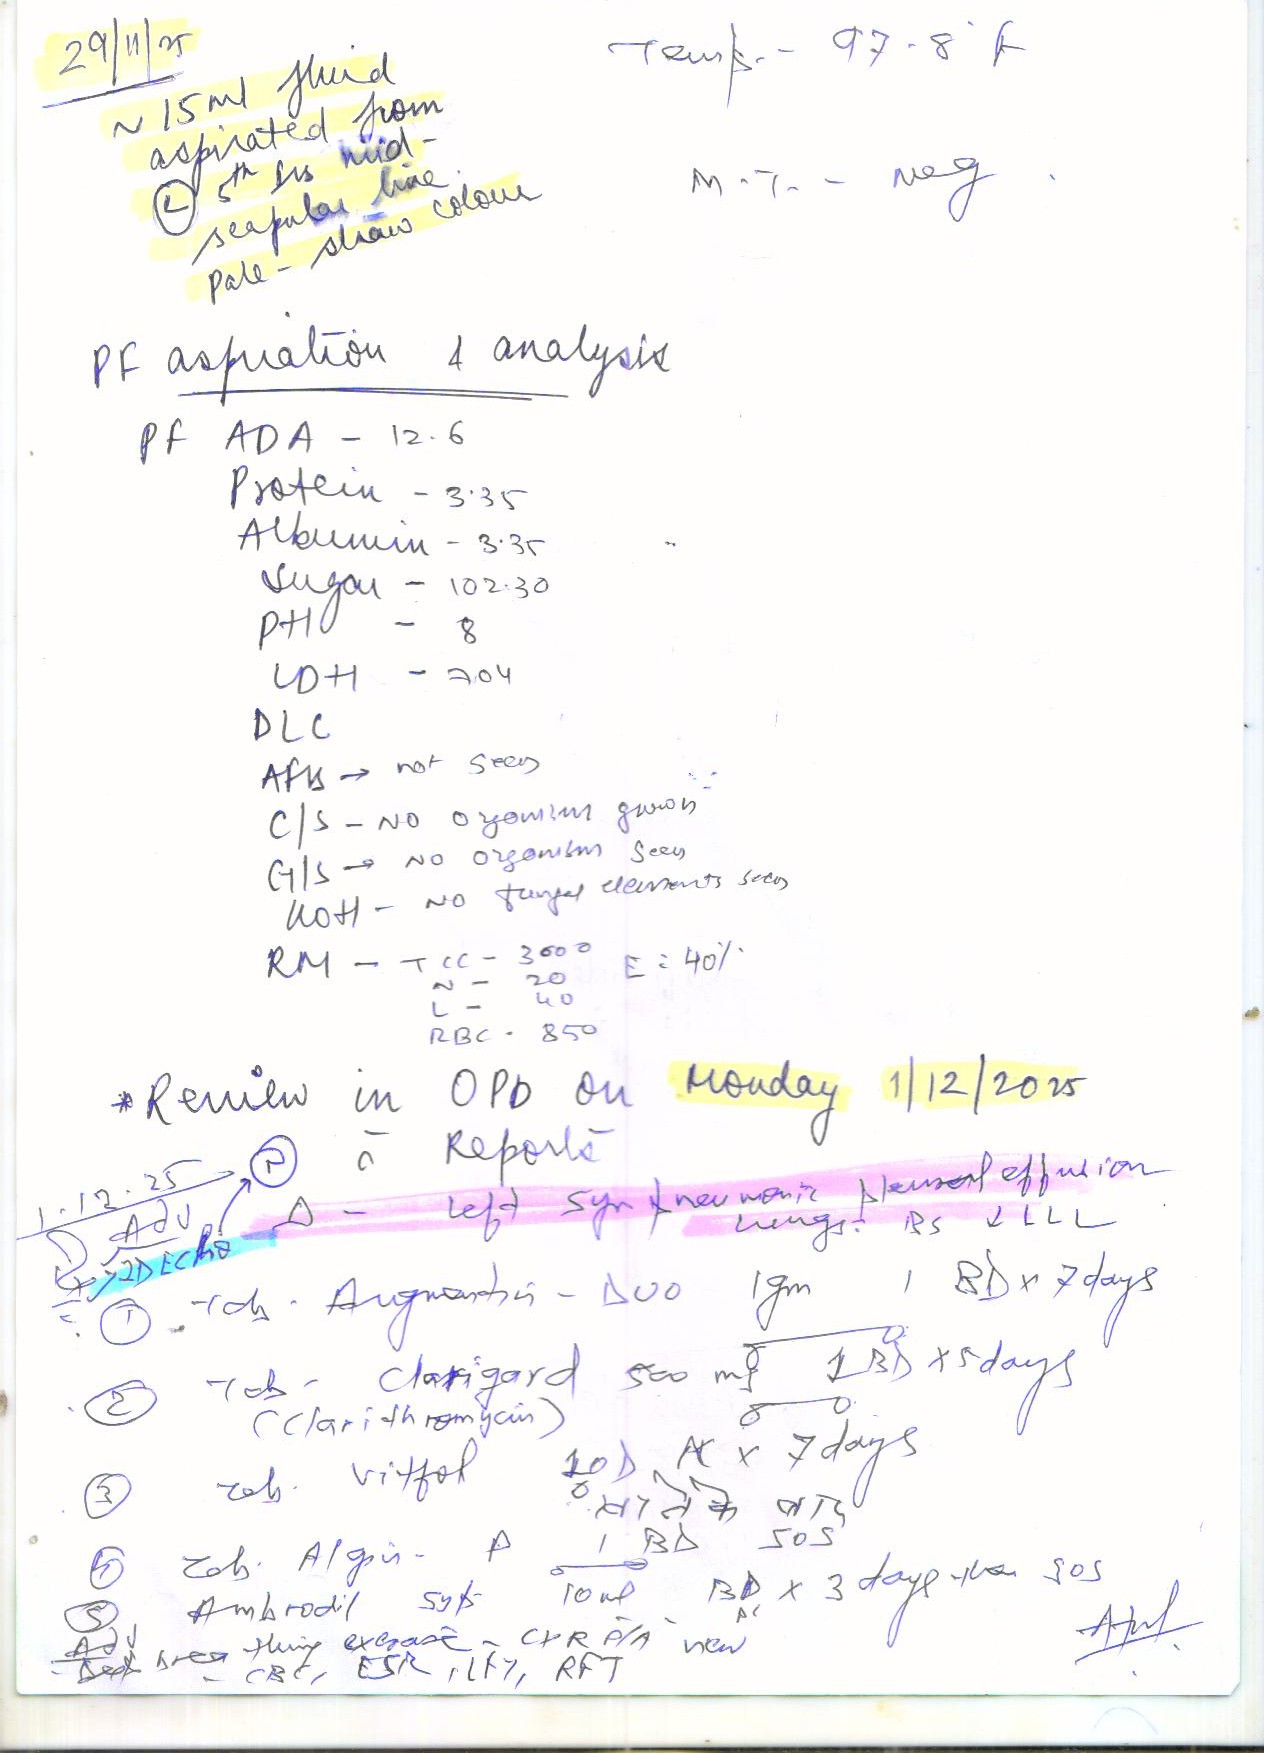 29/11/25
Temp. - 97.8°F
~ 15ml fluid
aspirated from
(L) 5th ICS mid-
scapular line.
pale-straw colour
M.T. - neg.
PF aspiration & analysis
PF ADA - 12.6
Protein - 3.35
Albumin - 3.35
Sugar - 102.30
PH - 8
LDH - 704
DLC
AFB → not seen
C/S - NO organism grown
G/S → NO organism seen
KOH - NO fungal elements seen
RM - TCC - 3000 E = 40%
N - 20
L - 40
RBC - 850
*Review in OPD on Monday 1/12/2025
c̄ Reports
1.12.25
Adv
2D ECHO
Δ - Left synpneumonic pleural effusion
Lungs: BS ↓ LLL
① Tab. Augmentin - DUO 1gm 1 BD x 7days
② Tab. Clarigard 500 mg 1 BD x 5days
(Clarithromycin)
③ Tab. Vitfol 1 OD x 7days
④ Tab. Algin - P 1 BD SOS
⑤ Ambrodil syp 10ml BD x 3 days then SOS
Adv
Deep breathing exercise - CXR P/A view
- CBC, ESR, LFT, RFT